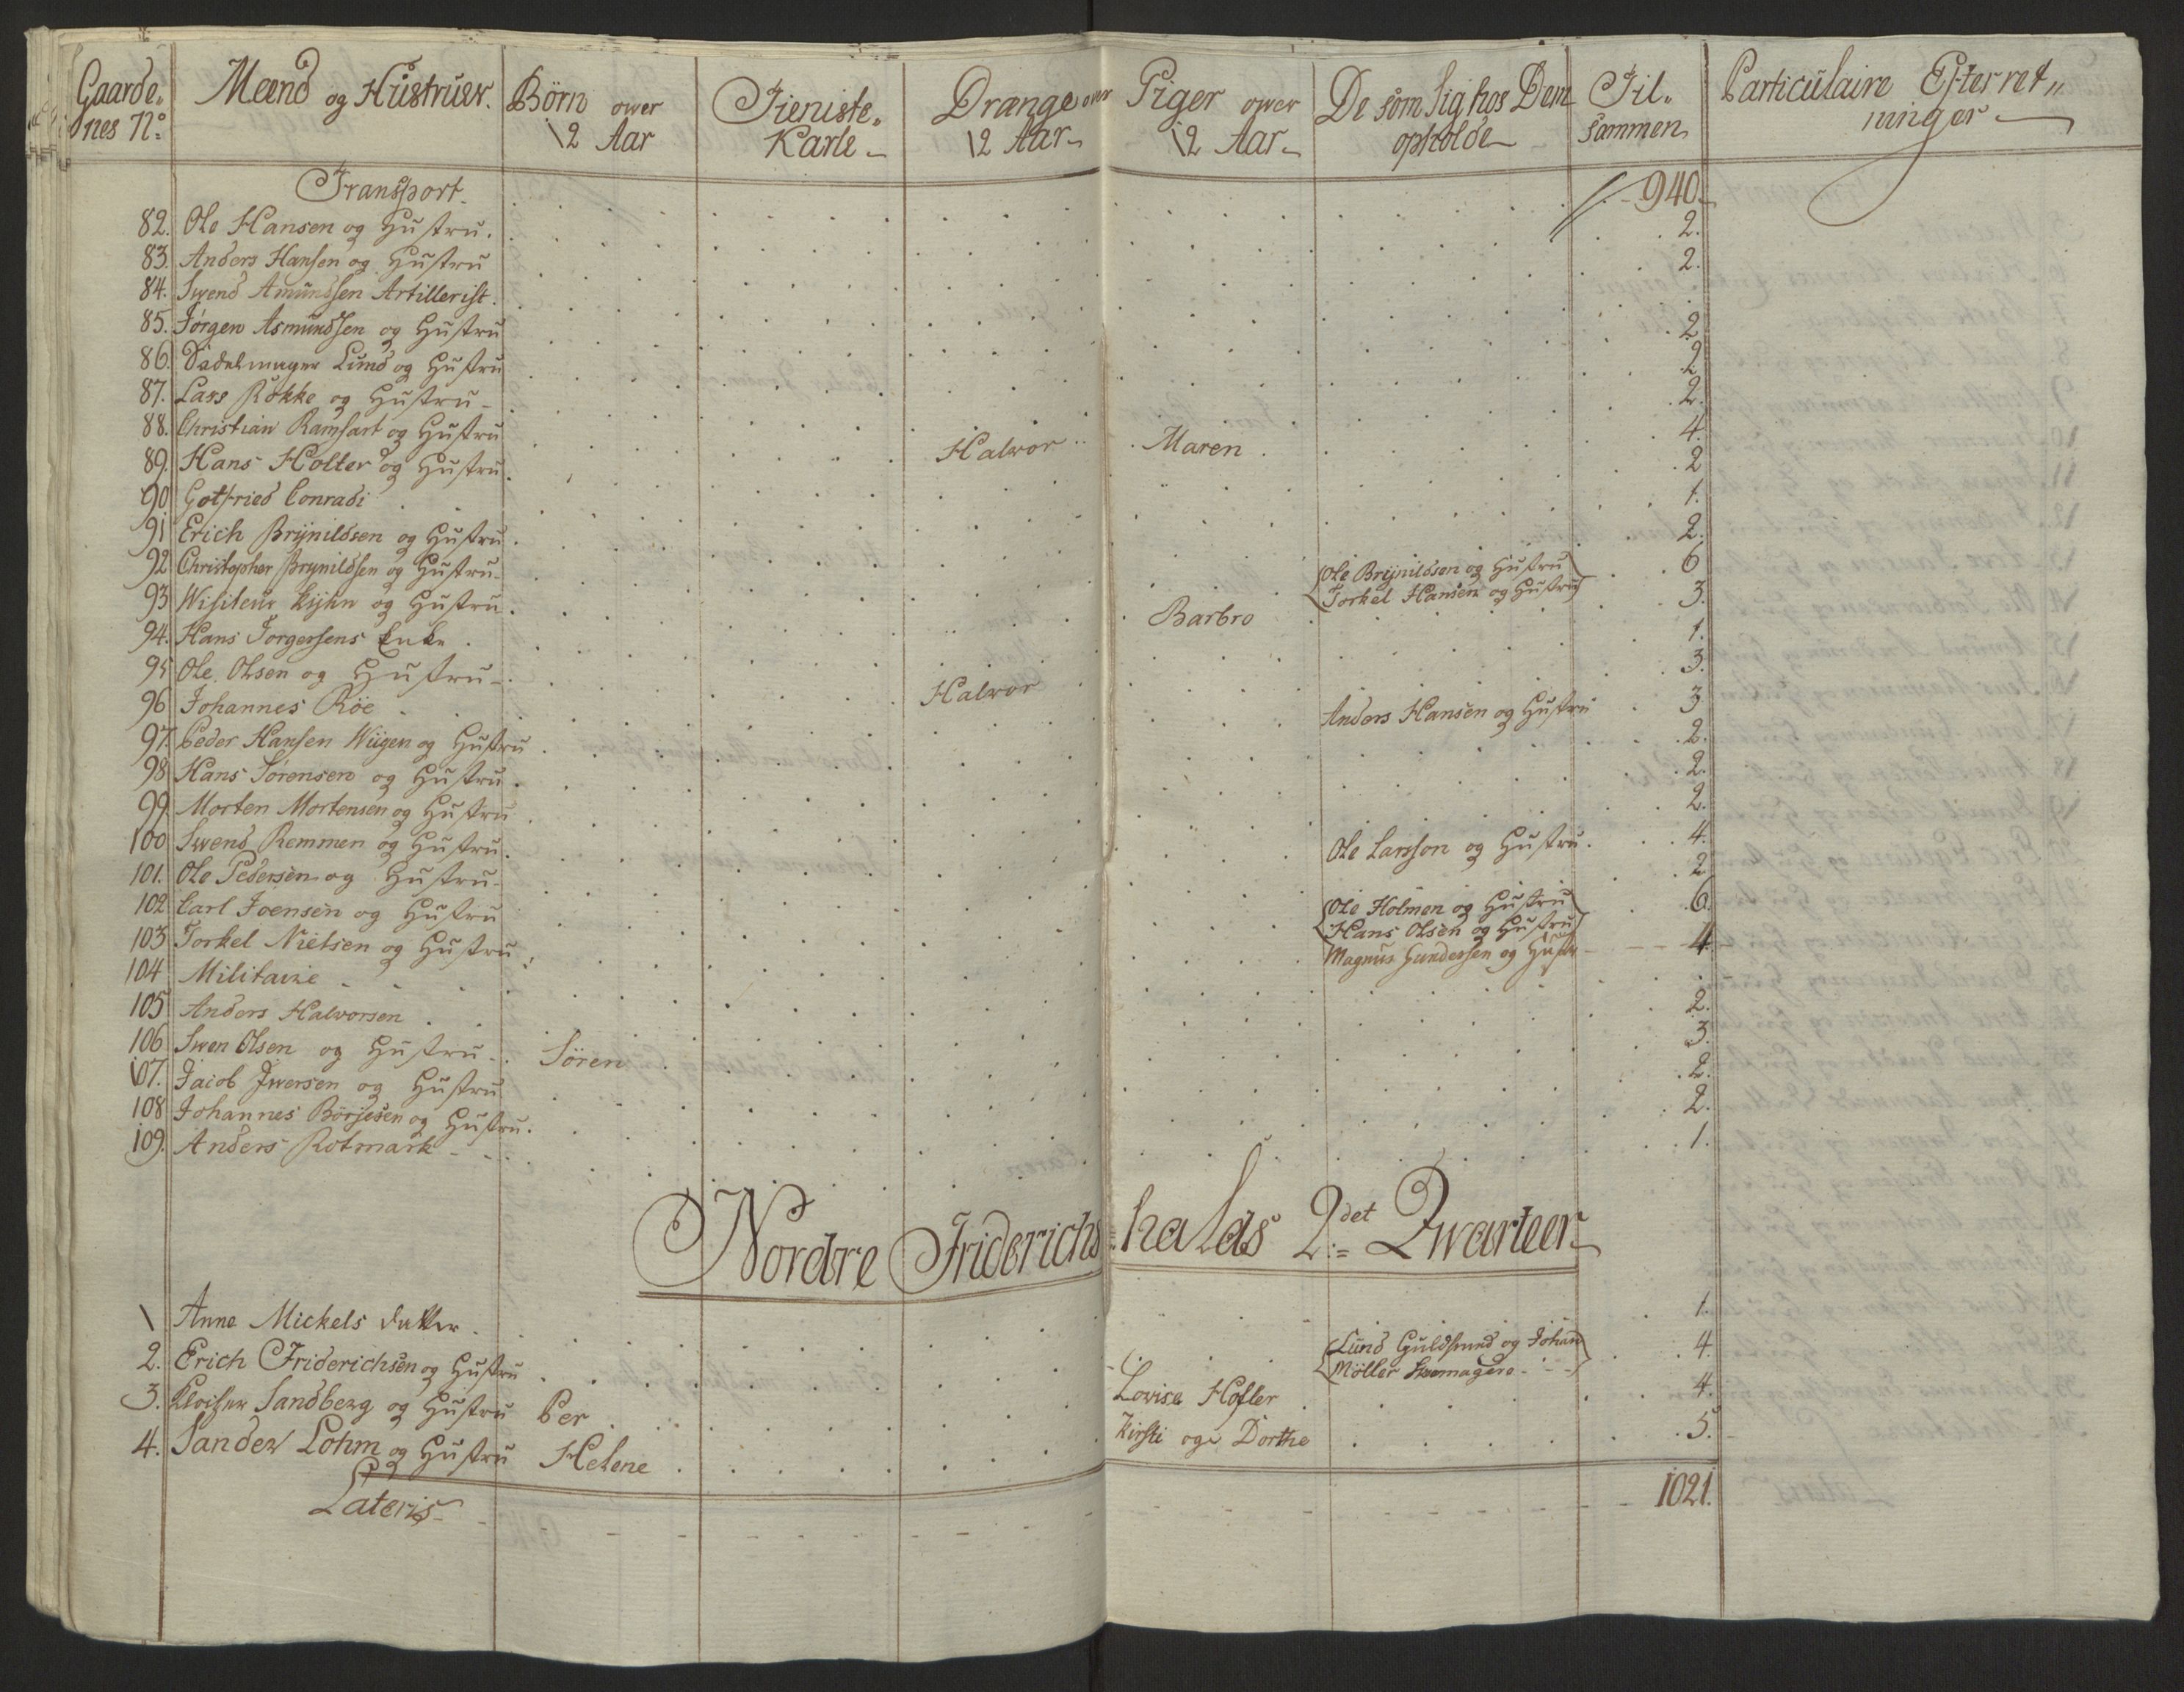 Gaarde„ nes No
Mænd og Hüstruer.
Börn ower 12 Aar
Tieniste„ Karle
Drænge over 12 Aar
Piger ower 12 Aar
De som sig hos Dem opholde
Til„ sammen
Particulaire Efterret„ ninger
Transport 940
82. Ole Hansen og Hustru. 2.
83. Anders Hansen og Hustru 2.
84. Swend Amundsen Artillerist.
85. Jørgen Asmundsen og Hustru 2
86. Sadelmager Lund og Hustru 2
87. Lars Rokke og Hustru 2.
88. Christian Ramsart og Hustru Halvor Maren 4.
89. Hans Holter og Hustru 2
90 Gotfried Conradi 1.
91 Erich Brynildsen og Hustru 2.
92 Christopher Brynildsen og Hustru Ole Brynildsen og Hustru 6
Torkel Hansen og Hustru
93 Wisiteur Kyhn og Hustru Barbro 3.
94. Hans Torgersens Enke 1.
95 Ole Olsen og Hustru Halvor 3.
96 Johannes Röe Anders Hansen og Hustru 3
97. Peder Hansen Wiigen og Hustru 2.
98 Hans Sörensen og Hustru 2.
99 Morten Mortensen og Hustru 2.
100 Swend Remmen og Hustru Ole Larsson og Hustru 4.
101. Ole Pedersen og Hustru 2
102 Carl Joensen og Hustru Ole Holmen og Hustru 6
Hans Olsen og Hustru
103 Torkel Nielsen og Hustru Magnus Gundersen og Hustr 4
104 Militaire
105 Anders Halvorsen 2.
106 Swen Olsen og Hustru Sören 3.
107. Jacob Iwersen og Hustru 2.
108 Johannes Börjesen og Hustru. 2.
109. Anders Rotmark 1.
Nordre Friderichshalds 2det Qwarteer
1 Anne Mickels datter 1.
2. Erich Friderichsen og Hustru Lund Guldsmed og Johan 4.
Möller
3. Sandberg og Hustru Per Lovise Hofler 4.
4. Sander Lohm og Hustru Helene Kirsti og Dorthe 5.
Lateris 1021.